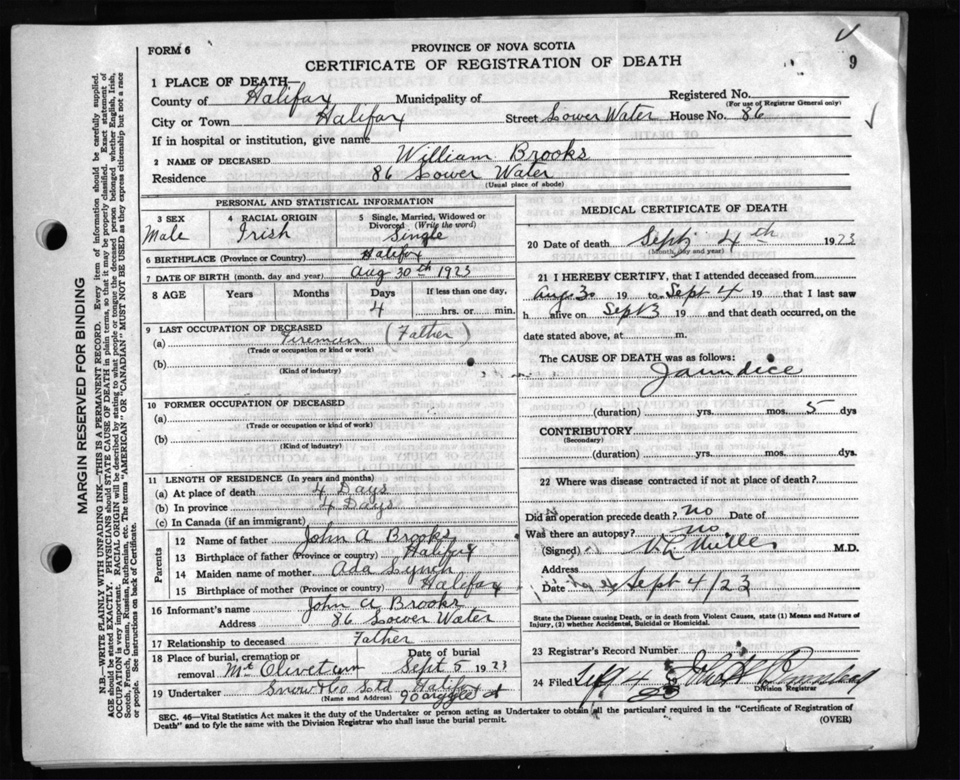 FORM 6
PROVINCE OF NOVA SCOTIA
CERTIFICATE OF REGISTRATION OF DEATH
9
1 PLACE OF DEATH—
County of Halifax Municipality of Registered No.
(For use of Registrar General only)
City or Town Halifax Street Lower Water House No. 86
If in hospital or institution, give name
2 NAME OF DECEASED William Brooks
Residence 86 Lower Water
(Usual place of abode)
PERSONAL AND STATISTICAL INFORMATION
3 SEX Male
4 RACIAL ORIGIN Irish
5 Single, Married, Widowed or Divorced (Write the word) Single
6 BIRTHPLACE (Province or Country) Halifax
7 DATE OF BIRTH (month, day and year) Aug 30th 1923
8 AGE Years Months Days If less than one day,
4 hrs. or min.
9 LAST OCCUPATION OF DECEASED
(a) Fireman (Father)
(Trade or occupation or kind or work)
(b)
(Kind of industry)
10 FORMER OCCUPATION OF DECEASED
(a)
(Trade or occupation or kind of work)
(b)
(Kind of industry)
11 LENGTH OF RESIDENCE (In years and months)
(a) At place of death 4 Days
(b) In province 4 Days
(c) In Canada (if an immigrant)
Parents
12 Name of father John A Brooks
13 Birthplace of father (Province or country) Halifax
14 Maiden name of mother Ada Lynch
15 Birthplace of mother (Province or country) Halifax
16 Informant's name John A Brooks
Address 86 Lower Water
17 Relationship to deceased Father
18 Place of burial, cremation or removal Mt Olivet Date of burial Sept 5 1923
19 Undertaker Snow & Co Ltd Halifax
(Name and Address) 90 Argyle St
MEDICAL CERTIFICATE OF DEATH
20 Date of death Sept 4th 1923
(Month, day and year)
21 I HEREBY CERTIFY, that I attended deceased from
Aug 30 19 to Sept 4 19 that I last saw
h alive on Sept 3 19 and that death occurred, on
date stated above, at m.
The CAUSE OF DEATH was as follows:
Jaundice
(duration) yrs. mos. 5 dys
CONTRIBUTORY
(Secondary)
(duration) yrs. mos. dys.
22 Where was disease contracted if not at place of death?
Did an operation precede death? no Date of
Was there an autopsy? no
(Signed) M.D.
Address
Date Sept 4/23
State the Disease causing Death, or in death from Violent Causes, state (1) Means and Nature of
Injury, (2) whether Accidental, Suicidal or Homicidal.
23 Registrar's Record Number
24 Filed Sept 4
Division Registrar
SEC. 46—Vital Statistics Act makes it the duty of the Undertaker or person acting as Undertaker to obtain all the particulars required in the "Certificate of Registration of
Death" and to fyle the same with the Division Registrar who shall issue the burial permit.
(OVER)
MARGIN RESERVED FOR BINDING
N.B.—WRITE PLAINLY WITH UNFADING INK—THIS IS A PERMANENT RECORD. Every item of information should be carefully supplied.
AGE should be stated EXACTLY. PHYSICIANS should STATE CAUSE OF DEATH in plain terms, so that it may be properly classified. Exact statement of
OCCUPATION is very important. RACIAL ORIGIN will be described by stating to what people or tongue the deceased person belonged whether English, Irish,
Scotch, French, German, Russian, Ruthenian, etc. The terms "AMERICAN" OR "CANADIAN" MUST NOT BE USED as they express citizenship but not a race
or people. See instructions on back of Certificate.